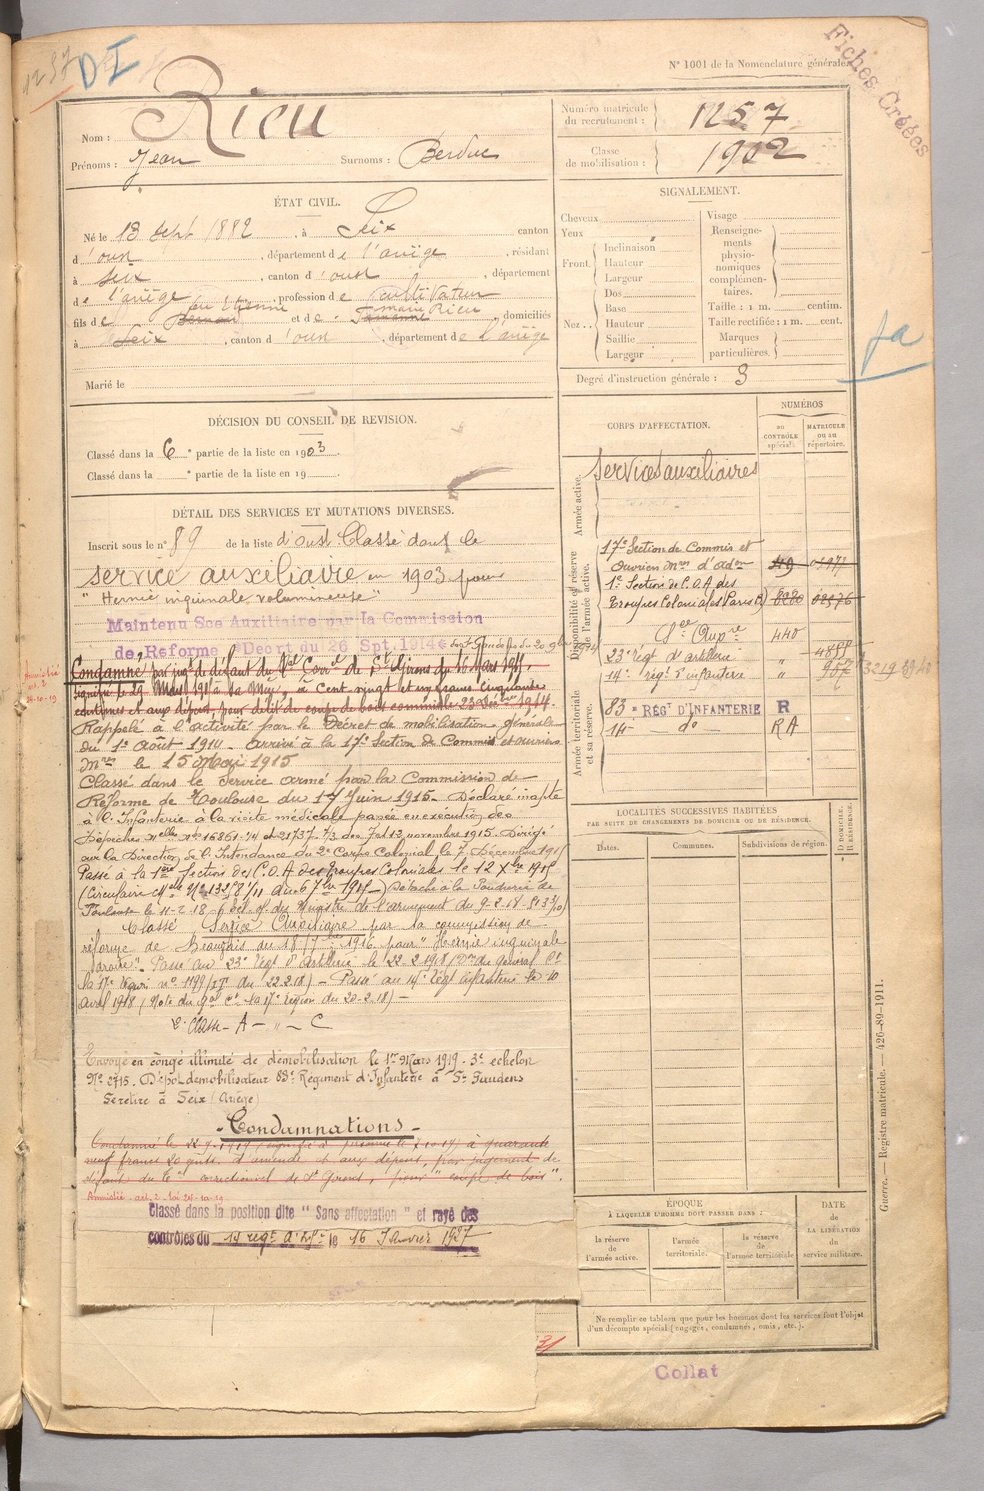 1257
DI
N° 1001 de la Nomenclature générale.
Fiches Créées
Nom : Rieu
Prénoms : Jean Surnoms : Berduc
Numéro matricule du recrutement : 1257
Classe de mobilisation : 1902
ÉTAT CIVIL.
Né le 13 Sept 1882, à Seix canton
d'oust, département de l'ariège, résidant
à Seix, canton d'oust, département
de l'ariège, profession de cultivateur
fils de feu Etienne et de Rieu, domiciliés
à Seix, canton d'oust, département de l'ariège
Marié le
SIGNALEMENT.
Cheveux
Yeux
Front.
Inclinaison
Hauteur
Largeur
Nez..
Dos
Base
Hauteur
Saillie
Largeur
Visage
Renseignements physionomiques complémentaires.
Taille : 1 m. centim.
Taille rectifiée : 1 m. cent.
Marques particulières.
Degré d'instruction générale : 3
DÉCISION DU CONSEIL DE REVISION.
Classé dans la 6e partie de la liste en 1903.
Classé dans la e partie de la liste en 19
DÉTAIL DES SERVICES ET MUTATIONS DIVERSES.
Inscrit sous le n° 89 de la liste d'oust Classé dans le
service auxiliaire en 1903 pour
" Hernie inguinale volumineuse "
Maintenu Sce Auxiliaire par la Commission
de Reforme Décret du 26 Spt. 1914
Condamné par jugt de défaut du Bal Correl de St Girons du 16 Mars 1915,
signifié le 29 Mars 1915 à à cent vingt et un francs cinquante
centimes et aux dépens, pour délit de coupe de bois commis le 23 Décbre 1914.
Amnistié
24-10-19
Rappelé à l'activité par le Décret de mobilisation générale
du 1er Août 1914 - Arrivé à la 17e Section de Commis et ouvriers
Mres le 15 Mai 1915
Classé dans le service armé par la Commission de
Réforme de Toulouse du 17 Juin 1915. Déclaré inapte
à l'Infanterie à la visite médicale passée en exécution des
Dépêches Melles nos 16861-7/4 et 21737-7/3 des 7 et 12 novembre 1915. Dirigé
sur la Direction de l'Intendance du 2e Corps Colonial le 7 Décembre 1915
Passé à la 1ère Section des C.O.A. des Troupes Coloniales le 12 Xbre 1915
Détaché à la Poudrerie de
Toulouse le 11-2-18 du Ministre de l'armement du 9-2-18
Classé Service Auxiliaire par la commission de
réforme de Beauvais du 18 1916 pour "Hernie inguinale
droite". Passé au 23e Régt d'artillerie le 22-2-1918
la 17e région no 1199 du 22-2-18) - Passé au 14e Régt infanterie le 10
avril 1918 (Note du Gal Ct la 17e région du 20-2-18) -
Classe - A - " - C
Envoyé en congé illimité de démobilisation le 1er Mars 1919 - 3e echelon
No 2715. Dépôt démobilisateur 83e Régiment d'Infanterie à St Gaudens
Se retire à Seix (Ariège)
- Condamnations -
Condamné le 22-9-1919 à quarante
neuf francs 20 d'amende et aux dépens, par jugement de
défaut du Tal correctionnel de St Girons, pour "coupe de bois".
Amnistié - art. 2 - loi 24-10-19
Classé dans la position dite " Sans affectation " et rayé des
contrôles du 14 regt d'Infie le 16 Janvier 1927
CORPS D'AFFECTATION.
NUMÉROS
au CONTRÔLE spécial.
MATRICULE ou au répertoire.
Armée active.
Services auxiliaires
Disponibilité et réserve de l'armée active.
17e Section de Commis et
Ouvriers Mres d'adon 49
1e Section de C.O.A des
Troupes Coloniales Paris
440
23e régt d'artillerie "
14e régt d'infanterie " 957
Armée territoriale et sa réserve.
83e RÉGT D'INFANTERIE R
14 - do - RA
fa
LOCALITÉS SUCCESSIVES HABITÉES
PAR SUITE DE CHANGEMENTS DE DOMICILE OU DE RÉSIDENCE.
Dates.
Communes.
Subdivisions de région.
D DOMICILE.
R RÉSIDENCE.
ÉPOQUE
À LAQUELLE L'HOMME DOIT PASSER DANS :
la réserve de l'armée active.
l'armée territoriale.
la réserve de l'armée territoriale
DATE de LA LIBÉRATION du service militaire.
Ne remplir ce tableau que pour les hommes dont les services font l'objet
d'un décompte spécial (engagés, condamnés, omis, etc.).
Guerre. — Registre matricule. — 426-89-1911.
Collat